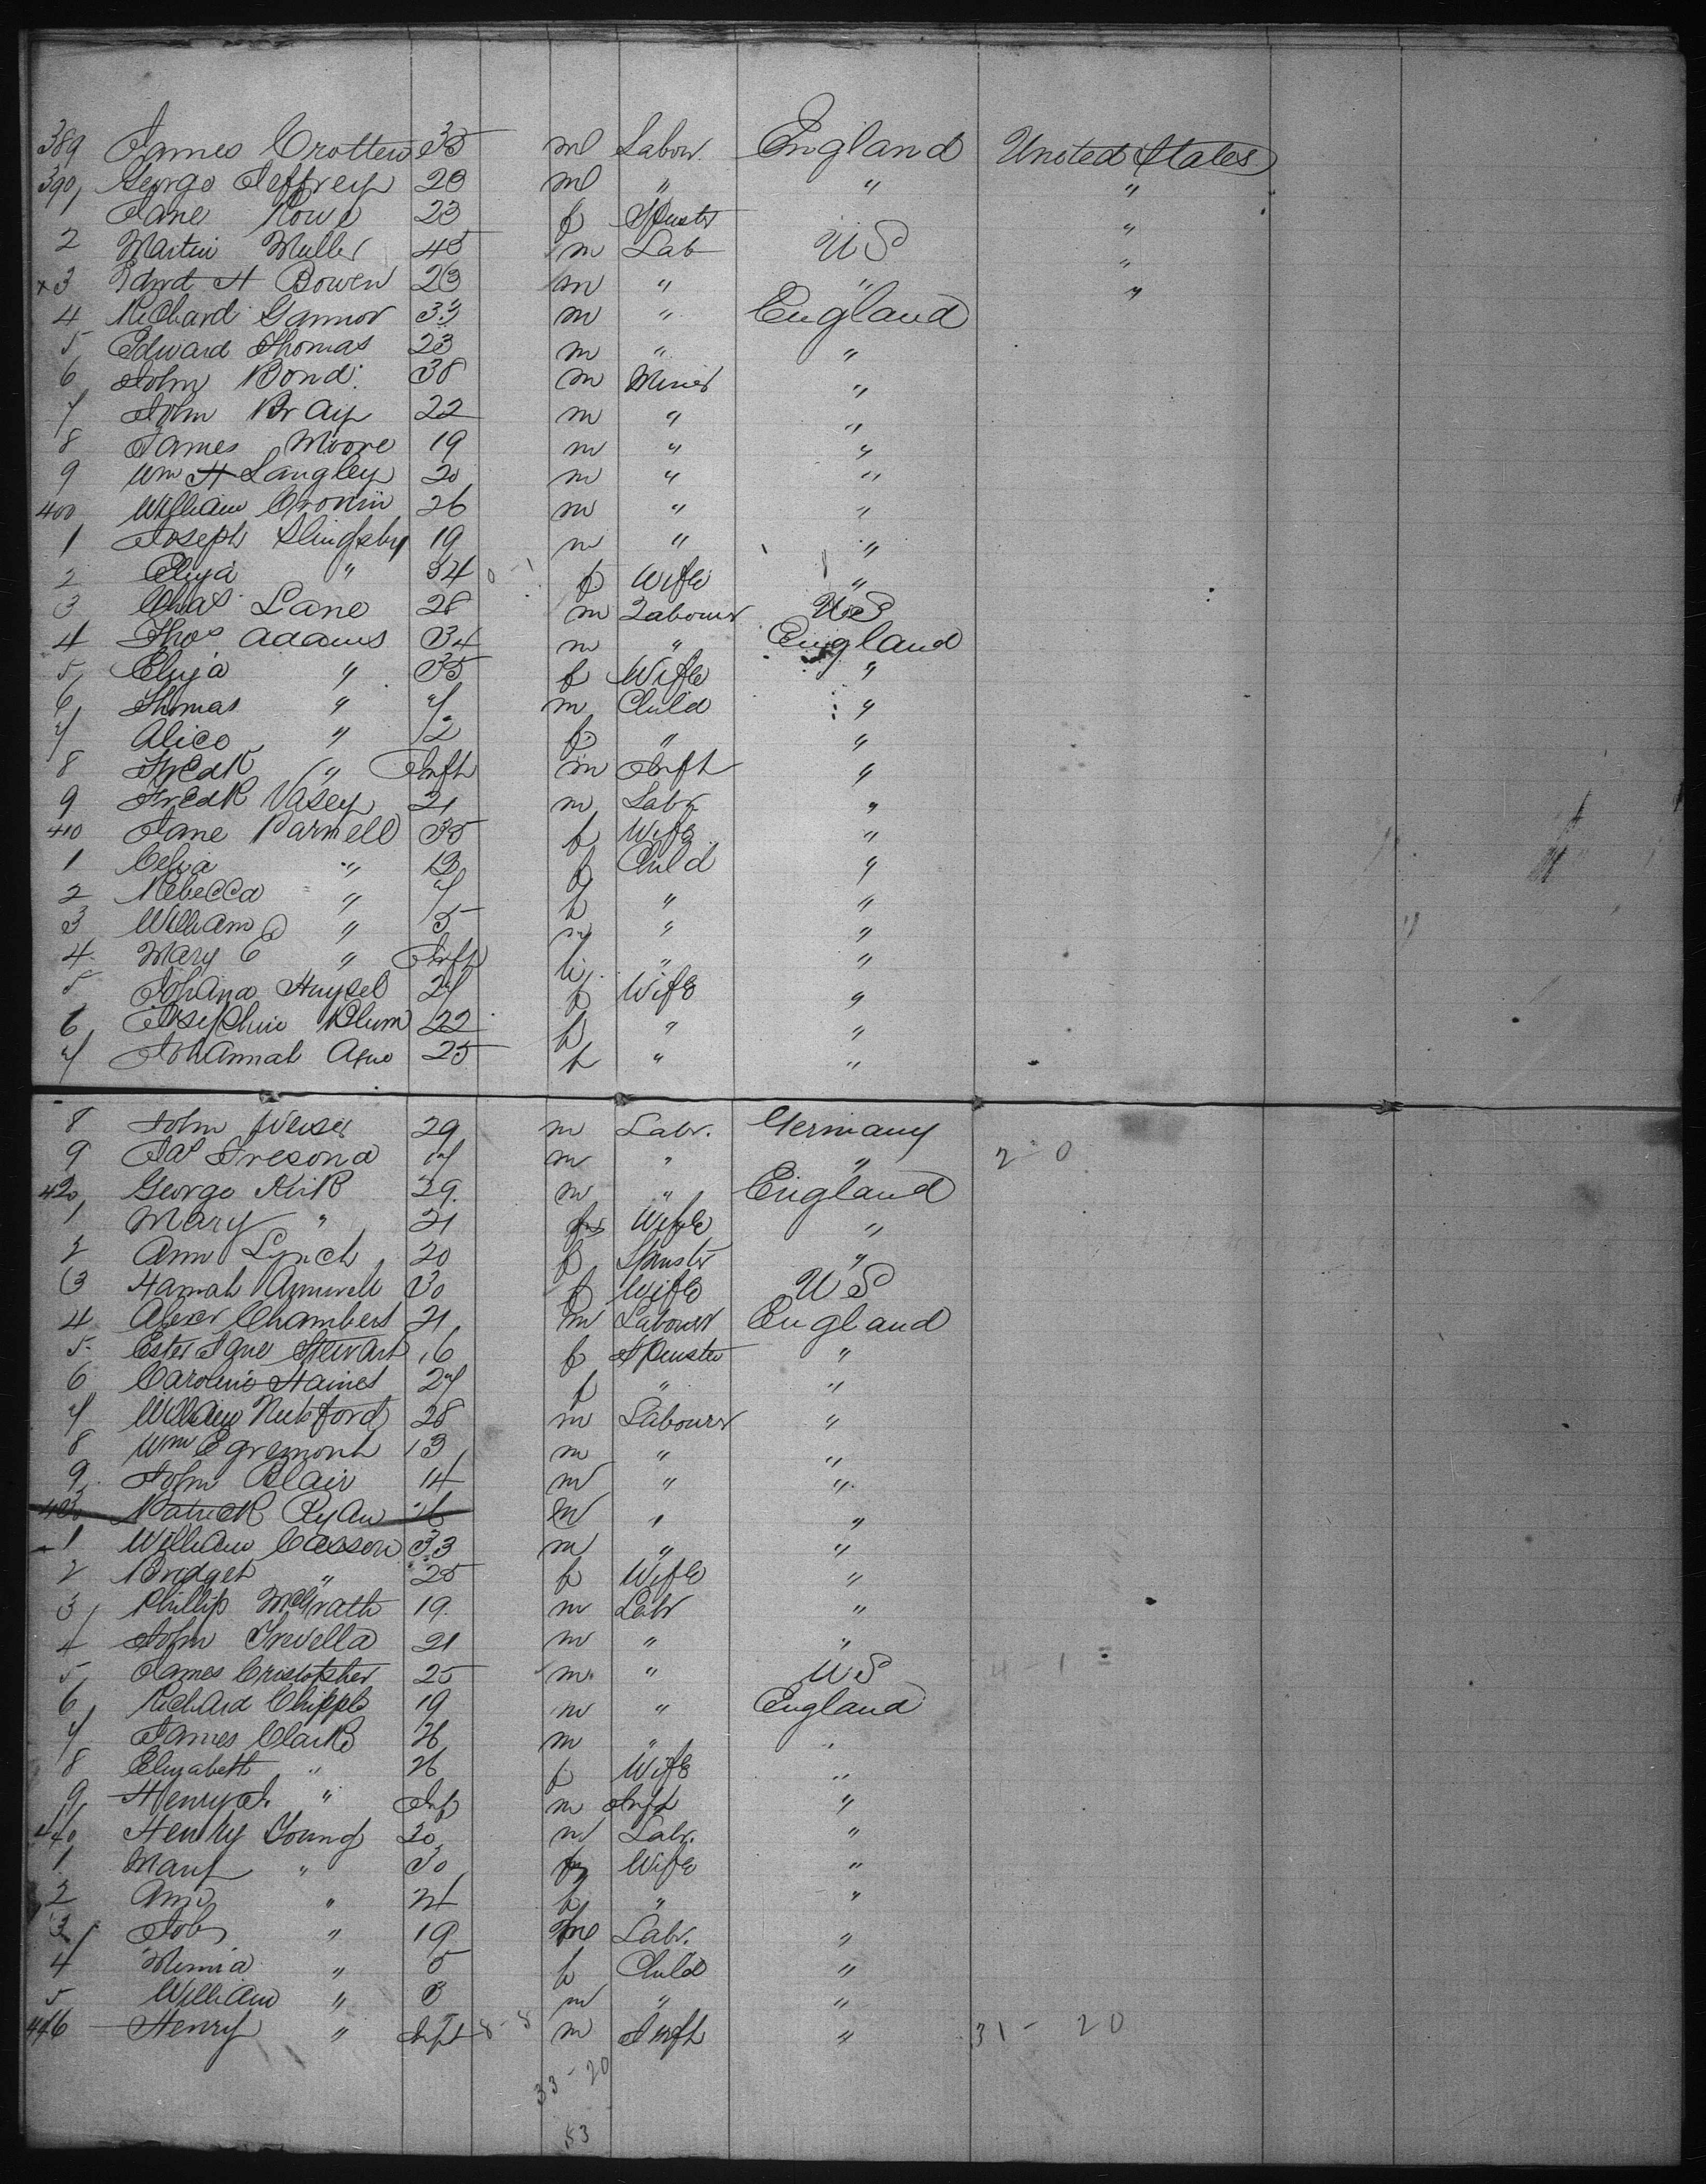 389 James Crotten 35 m Labor. England United States
390 George Jeffrey 23 m " " "
1 Jane Rowe 23 f Spinster "
2 Martin Muller 45 m Lab US "
x3 Edwd H Bowen 23 m " " "
4 Richard Gannor 33 m " England
5 Edward Thomas 23 m " "
6 John Bond 38 m Miner "
7 John Bray 22 m " "
8 James Moore 19 m " "
9 Wm H Langley 20 m " "
400 William Cronin 26 m " "
1 Joseph Slingsby 19 m " "
2 Eliza " 34 f Wife "
3 Chas Lane 28 m Labourer US
4 Thos Adams 34 m " England
5 Eliza " 35 f Wife "
6 Thomas " 7 m Child "
7 Alice " 2 f " "
8 Fredk " Inft m Inft "
9 Fredk Vasey 21 m Labr. "
410 Jane Parnell 35 f Wife "
1 Celia " f Child "
2 Rebecca " 7 f " "
3 William " 5 m " "
4 Mary E " Inft f " "
5 Johana Huysel 27 f Wife "
6 Josephine Blum 22 f " "
7 Johannah 25 f " "
8 John Weiser 29 m Labr. Germany
9 Jas 17 m " " 2 - 0
420 George Kirk 29 m " England
1 Mary " 21 f Wife "
2 Ann Lynch 20 f Spinster "
3 Hannah 30 f Wife US
4 Alexr Chambers 21 m Labourer England
5 Ester Jane Stewart 16 f Spinster "
6 Caroline Haines 27 f " "
7 William 28 m Labourer "
8 Wm Egremont 13 m " "
9 John Blair 14 m " "
430 Patrick Ryan 26 m " "
1 William Casson 33 m " "
2 Bridget " 25 f Wife "
3 Phillip McGrath 19 m Labr "
4 John Trevella 21 m " "
5 James Cristopher 25 m " US 4 - 1
6 Richard Chipple 19 m " England
7 James Clarke 26 m " "
8 Elizabeth " 26 f Wife "
9 Henry J. " Inf m Inft "
440 Henry Young 30 m Labr. "
1 Mary " 30 f Wife "
2 Ann " 21 f " "
3 Job " 19 m Labr. "
4 Minnia " 5 f Child "
5 William " 3 m " "
446 Henry " Inft 8 - 8 m Inft " 31 - 20
33 - 20
53